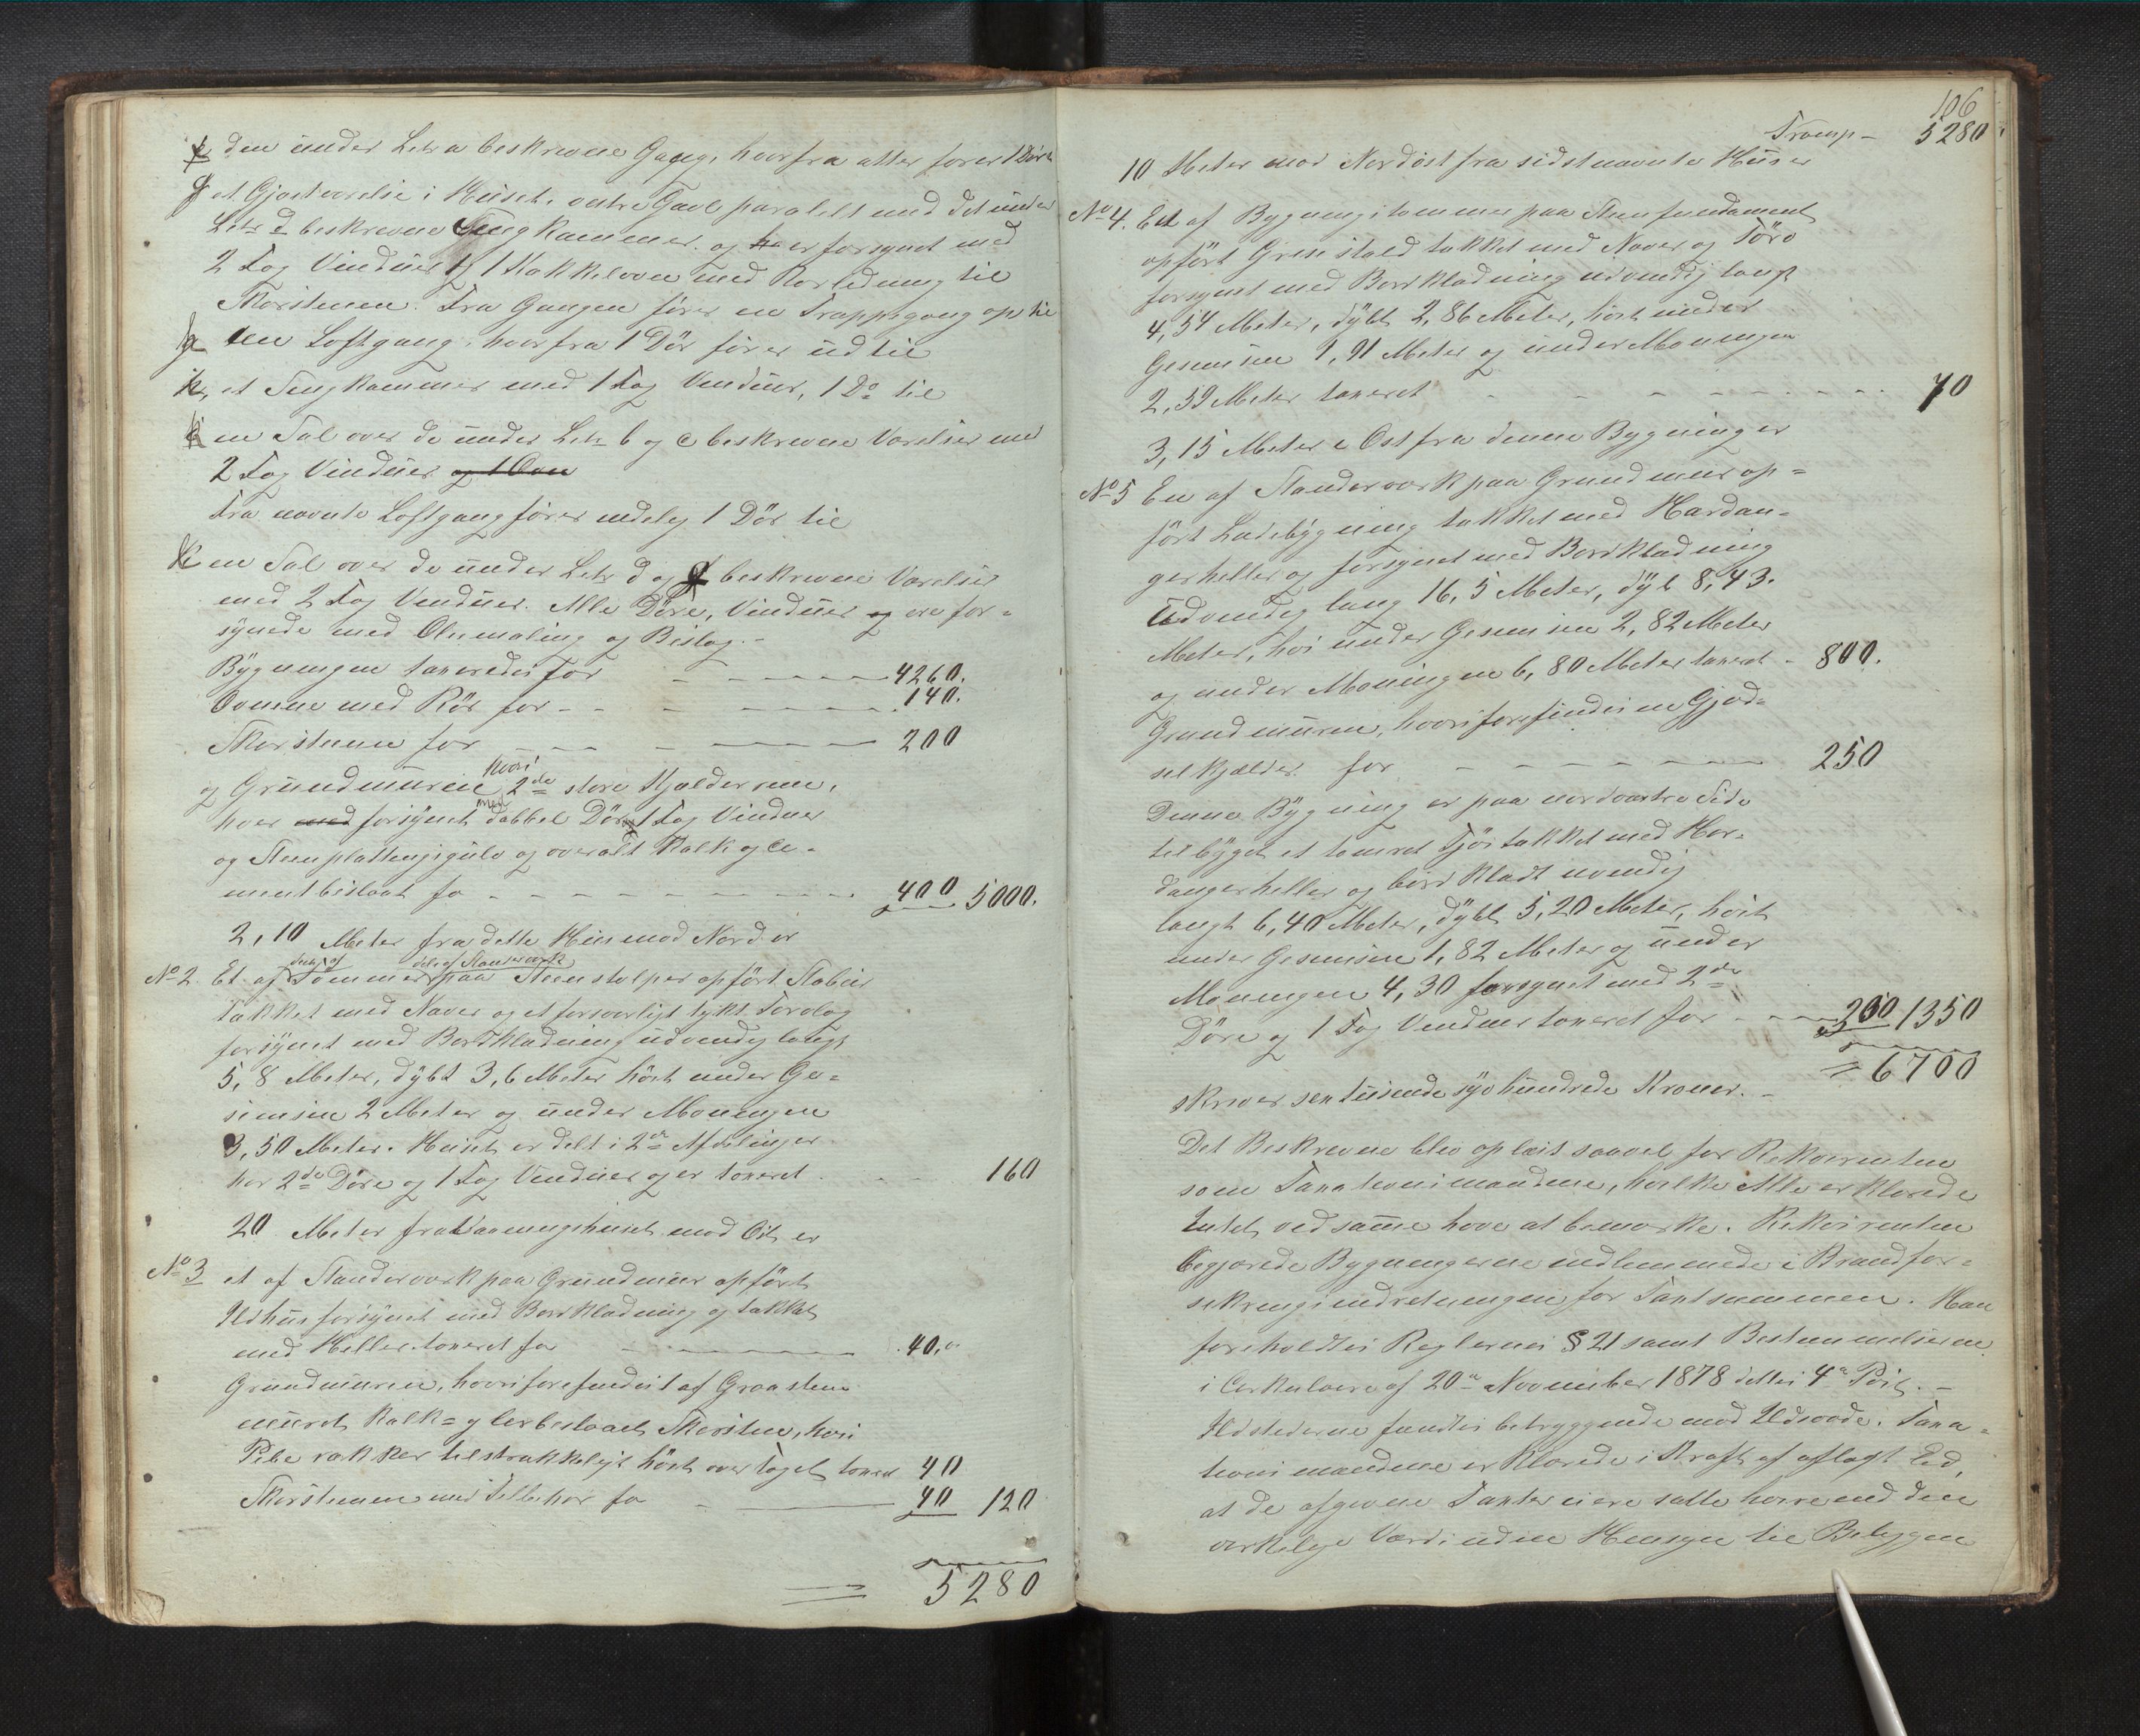 den under Letr a beskrevne Gang, hvorfra atter fører 1 Dör til
et Gjæsteværelse i Husets østre Gavl paralelt med det under
Letr d beskrevne Sengkammer og er forsynet med
2 Fag Vinduer og 1 Kakkelovn med Rørledning til
Skorstenen. Fra Gangen fører en Trappegang op til
en Loftgang, hvorfra 1 Dör fører ud til
et Sengkammer med 1 Fag Vinduer, 1 Do til
en Sal over de under Letr b og c beskrevne Værelser med
2 Fag Vinduer og 1 Ovn
Fra nævnte Loftgang fører endelig 1 Dör til
en Sal over de under Letr d og f beskrevne Værelser
med 2 Fag Vinduer. Alle Döre, Vinduer og ere for-
synede med Oliemaling og Beslag.-
Bygningen taxeredes for 4260.
Ovnene med Rör for - 140.
Skorstenen for 200
og Grundmuren hvori 2de store Kjælderrum,
hver med forsynet med dobbel Dör, 1 Fag Vinduer
og Steenplattengsgulv og overalt Kalk og Ce-
mentbeslaat fo 400 5000.
2,10 Meter fra dette Huus mod Nord er
No 2. Et af deels af Tømmer deels af Standerværk paa Steenstolper opført Stabuur
takket med Næver og et forsvarligt tykt Torvlag
forsynet med Bordklædning udvendig langt
5,8 Meter, dybt 3,6 Meter höit under Ge-
simsen 2 Meter og under Møningen
3,50 Meter. Huset er delt i 2de Afdelinger
har 2de Döre og 1 Fag Vinduer og er taxeret 160
20 Meter fra Vaaningshuset mod Öst er
No 3 et af Standerværk paa Grundmuur opført
Ildhuus forsynet med Bordklædning og takket
med Heller taxeret fo 40.
Grundmuren, hvori forefindes et af Graasteen
muret Kalk= og lerbeslaaet Skorsten, hvis
Pibe rækker tilstrækkeligt höit over Taget taxeret 40
Skorstenen med Tilbehør fo 40 120
5280
106
Transp- 5280
10 Meter mod Nordöst fra sidstnævnte Huus er
No 4. Et af Bygningstømmer paa Steenfundament
opført Grisestald takket med Næver og Törv
forsynet med Bordklædning udvendig langt
4,54 Meter, dybt 2,86 Meter, höit under
Gesimsen 1,91 Meter og under Mønungen
2,59 Meter taxeret 70
3,15 Meter i Ost fra denne Bygning er
No 5 En af Standerværk paa Grundmuur op-
ført Ladebygning takket med Hardan-
gerheller og forsynet med Bordklædning
Udvendig lang 16,5 Meter, dyb 8,43.
Meter, höi under Gesimsen 2,82 Meter
og under Møningen 6,80 Meter taxeret - 800.
Grundmuren, hvori forefindes en Gjød-
selkjælder for 250
Denne Bygning er paa nordvestre Side
tilbygget et taxeret Fjös takket med Har-
dangerheller og bordklædt uvendig
langt 6,40 Meter, dybt 5,20 Meter, höit
under Gesimsen 1,82 Meter og under
Møningen 4,30 forsynet med 2de
Döre og 1 Fag Vinduer taxeret for 300 1350
= 6700
skriver sextusinde syvhundrede Kroner. -
Det Beskrevne blev oplæst saavel for Rekvirenten
som Taxationsmændene, hvilke Alle erklærede
Intet ved samme have at bemærke. Rekvirenten
begjærede Bygningerne indlemmede i Brandfor-
sikringsindretningen for Taxtsummen. Han
foreholdtes Reglernes § 21 samt Bestemmelserne
i Cirkulære af 20de November 1878 dettes 4de Post. -
Ildstederne fandtes betryggende mod Ildsvaade. Taxa-
tionsmændene erklærede i Kraft af aflagt Ed,
at de afgivne Taxter ei ere satte høiere end den
virkelige Værdi uden Hensyn til Beliggen